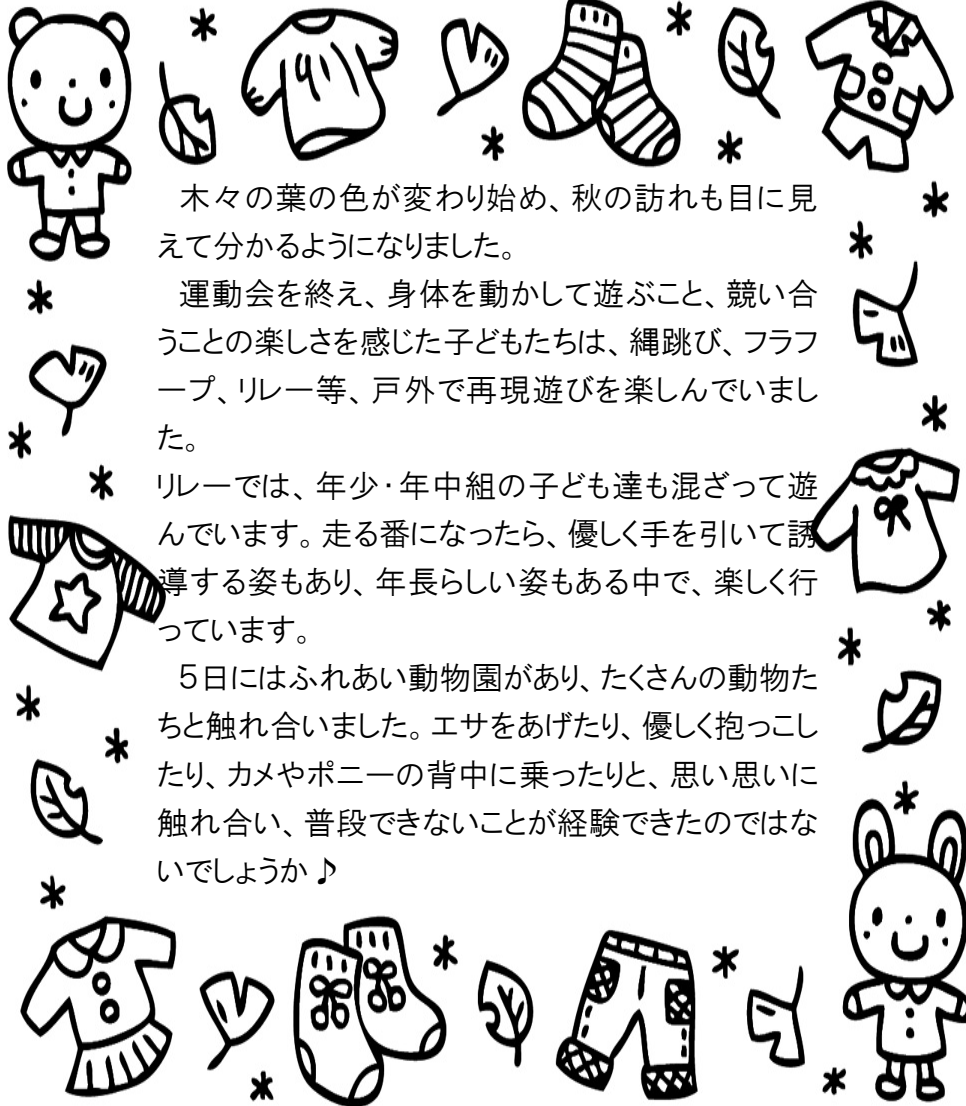 木々の葉の色が変わり始め、秋の訪れも目に見
えて分かるようになりました。
　運動会を終え、身体を動かして遊ぶこと、競い合
うことの楽しさを感じた子どもたちは、縄跳び、フラフ
ープ、リレー等、戸外で再現遊びを楽しんでいまし
た。
リレーでは、年少・年中組の子ども達も混ざって遊
んでいます。走る番になったら、優しく手を引いて誘
導する姿もあり、年長らしい姿もある中で、楽しく行
っています。
　５日にはふれあい動物園があり、たくさんの動物た
ちと触れ合いました。エサをあげたり、優しく抱っこし
たり、カメやポニーの背中に乗ったりと、思い思いに
触れ合い、普段できないことが経験できたのではな
いでしょうか♪